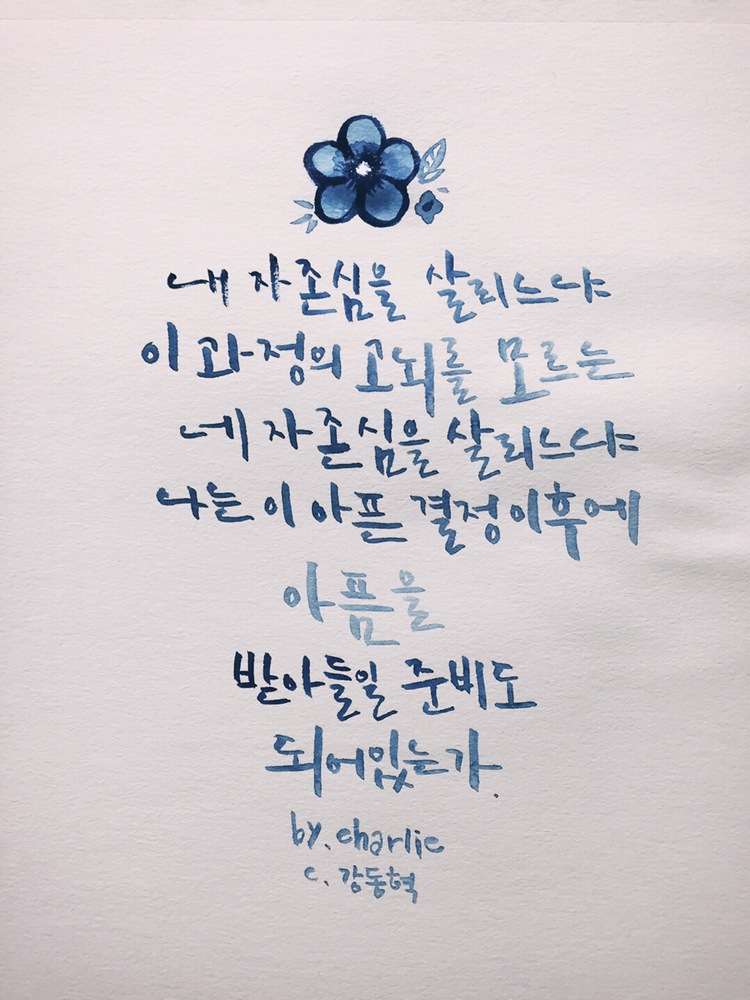 내 자존심을 살리느냐
이 과정의 고뇌를 모르는
네 자존심을 살리느냐
나는 이 아픈 결정이후에
아픔을
받아들일 준비도
되어있는가.
by. charlie
c. 강동혁